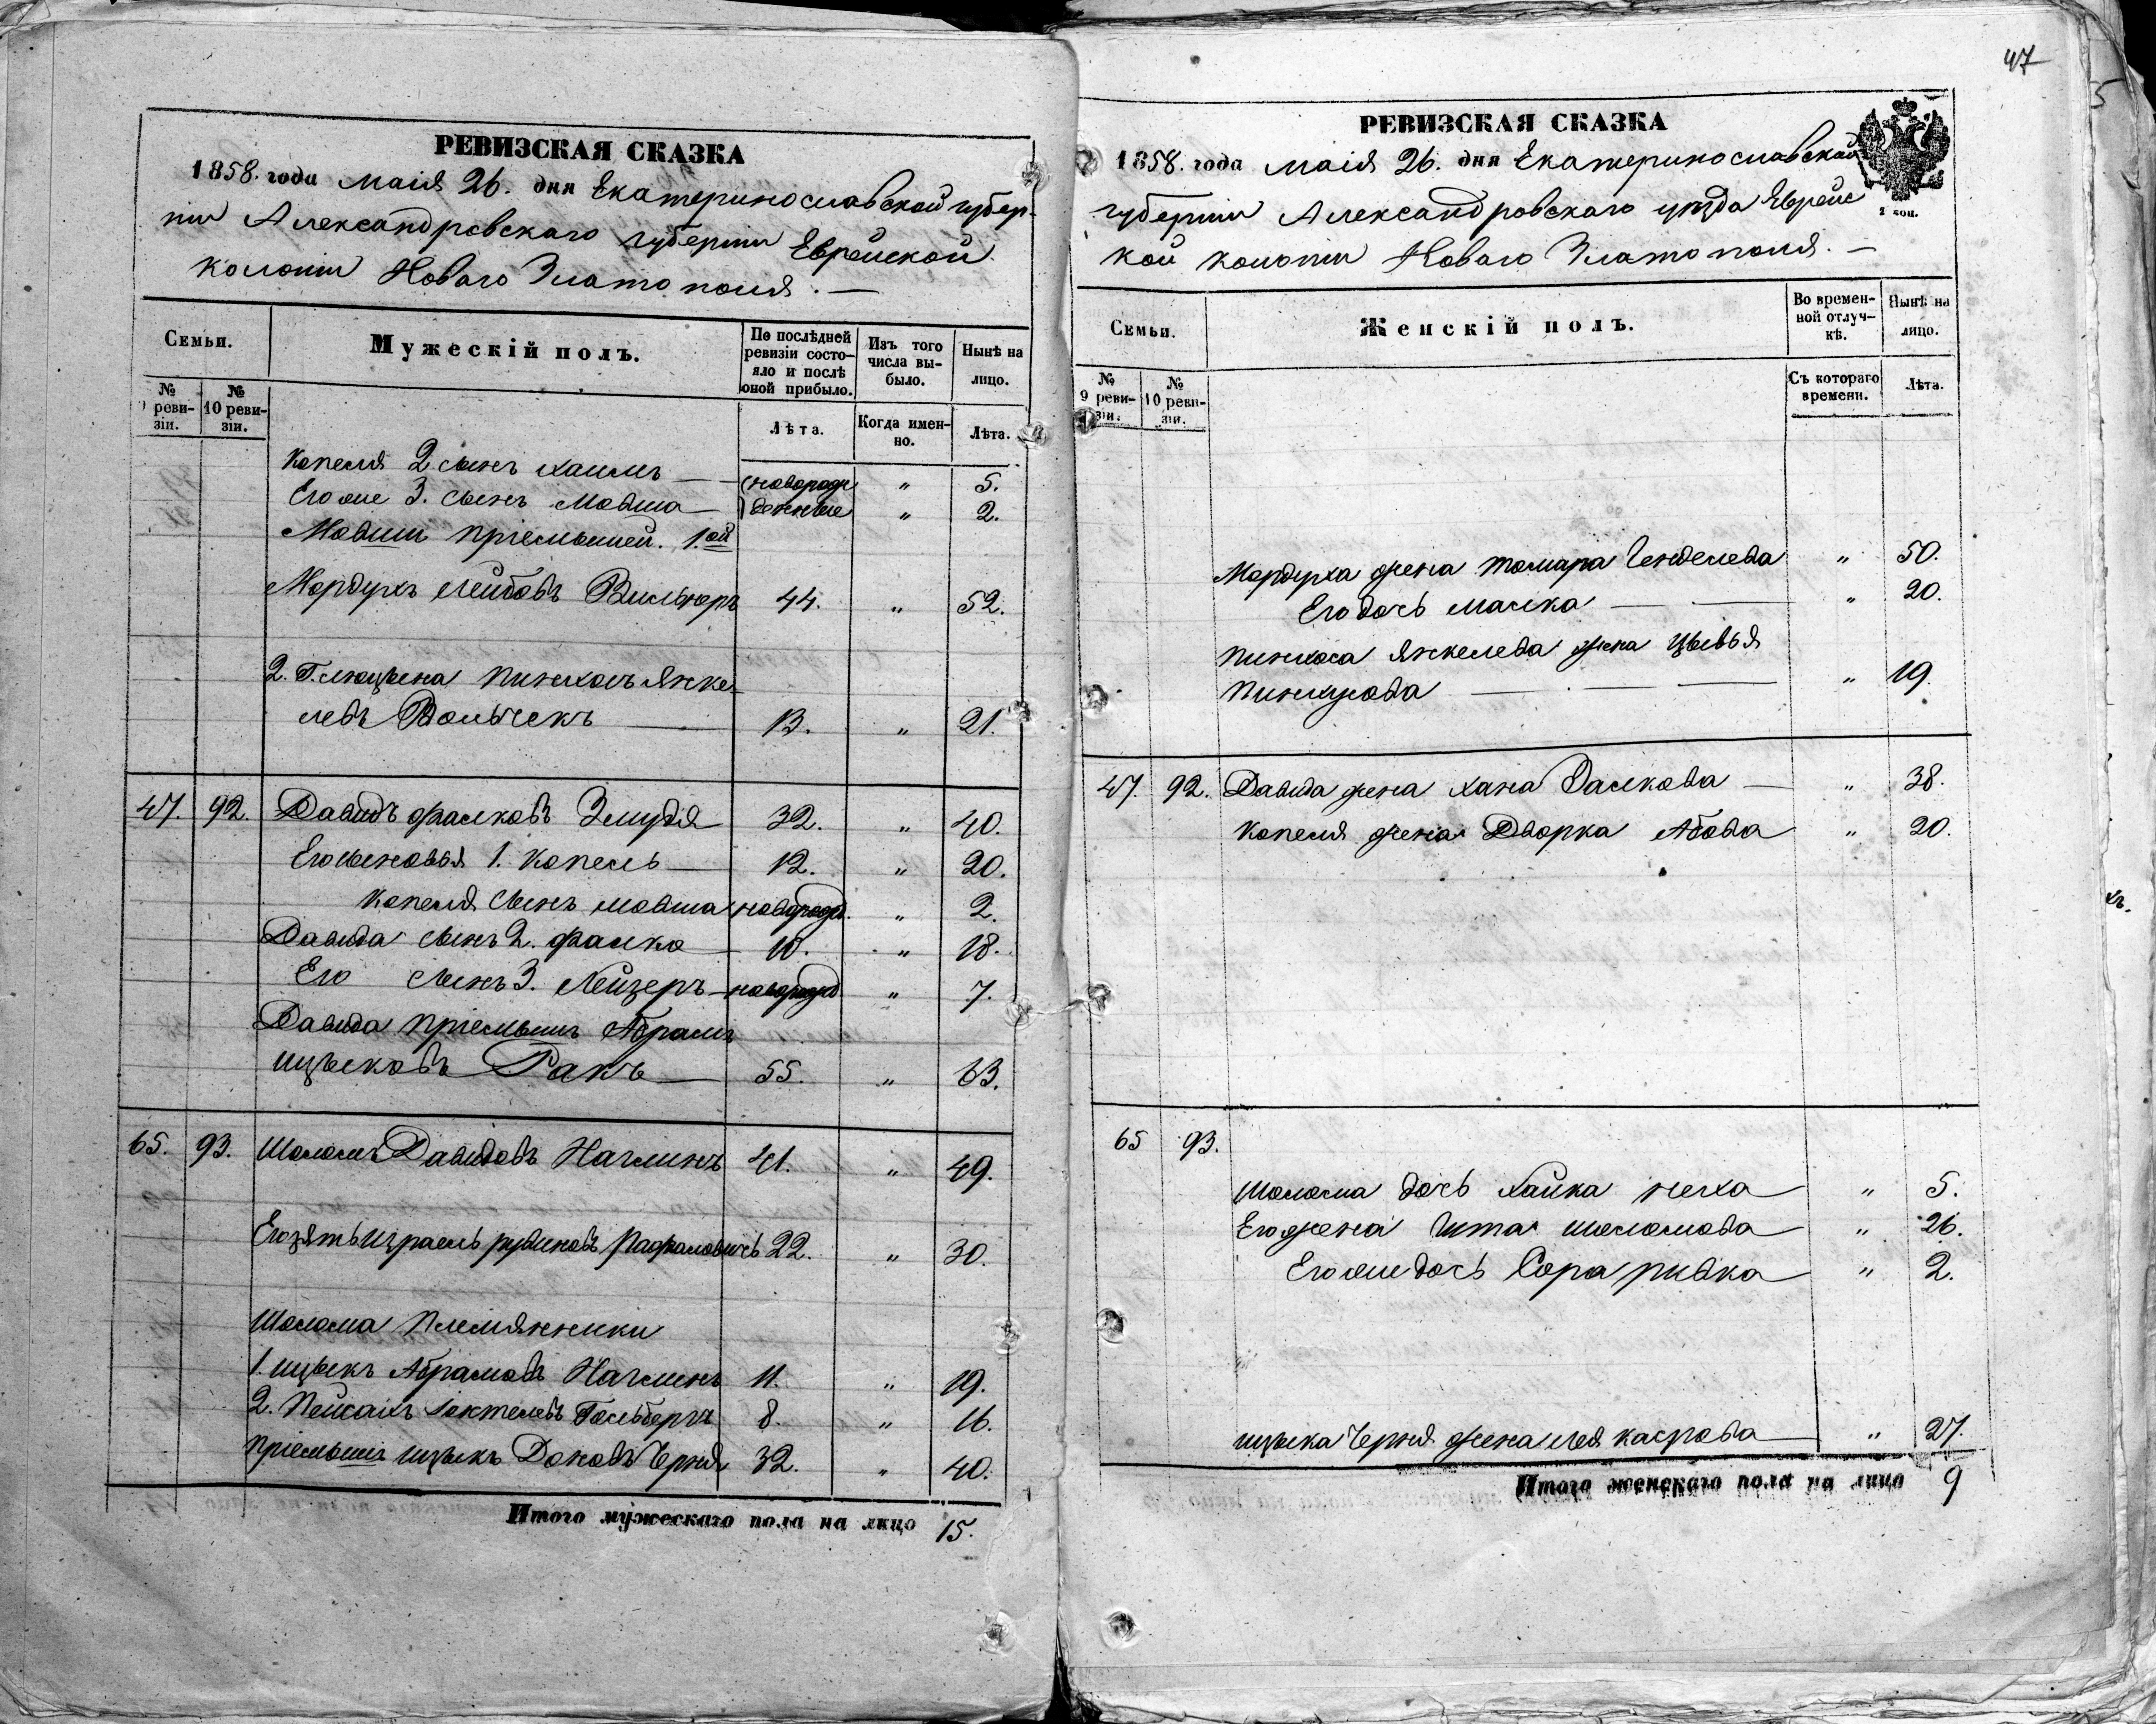 РЕВИЗСКАЯ СКАЗКА
1858. года маія 26. дня Екатеринославской губер-
ніи Александровскаго губерніи Еврейской
колоніи Новаго Златополя. —
Семьи.
Мужескій полъ.
По послѣдней ревизіи состояло и послѣ оной прибыло.
Изъ того числа выбыло.
Нынѣ на лицо.
№ 9 ревизіи.
№ 10 ревизіи.
Лѣта.
Когда именно.
Лѣта.
Копеля 2 сынъ Хаимъ — новорож " 5.
Его же 3. сынъ Мовша — денные " 2.
Мовши пріемышей. 1.ой
Мордухъ Лейбовъ 44. " 52.
2. Пинхосъ Янке-
левъ Волчекъ — 13. " 21.
47. 92. Давидъ Фалковъ Змудя 32. " 40.
Его сыновья 1. Копель — 12. " 20.
Копеля сынъ Мовша новорожд. " 2.
Давида сынъ 2. Фалко — 10. " 18.
Его сынъ 3. Лейзеръ — новорожд " 7.
Давида пріемышъ Абрамъ
Ицьковъ Ракъ — 55. " 63.
65. 93. Шоломъ Давидовъ Нагминъ 41. " 49.
Его зять Израель Рувиновъ Рафаловичъ 22. " 30.
Шолома племянники
1. Ицыкъ Абрамовъ Нагминъ 11. " 19.
2. Пейсахъ Гольбергъ 8. " 16.
Пріемышъ Ицыкъ Доновъ Черня 32. " 40.
Итого мужескаго пола на лицо 15.
47
РЕВИЗСКАЯ СКАЗКА
1858. года маія 26. дня Екатеринославской
губерніи Александровскаго уѣзда Еврейс
кой колоніи Новаго Златополя. —
1 коп.
Семьи.
Женскій полъ.
Во временной отлучкѣ.
Нынѣ на лицо.
№ 9 ревизіи.
№ 10 ревизіи.
Съ котораго времени.
Лѣта.
Мордуха жена Томара Генделева " 50.
Его дочь Малка — " 20.
Пинхоса Янкелева жена Цывья
Пинхусова — " 19.
47. 92. Давида жена Хана Далкова — " 38.
Копеля жена Дворка Абова " 20.
65 93.
Шолома дочь Хайка Неха " 5.
Его жена Ита Шоломова " 26.
Его же дочь Сора Ривка " 2.
Ицыка Черня жена Лея Каспрова " 27.
Итого женскаго пола на лицо 9